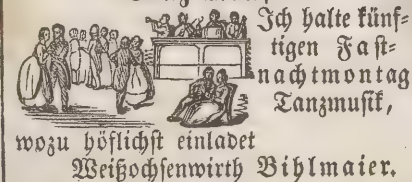 Ich halte künf-
tigen Fast-
nachtmontag
Tanzmusik,
wozu höflichst einladet
Weißochsenwirth Bihlmaier.